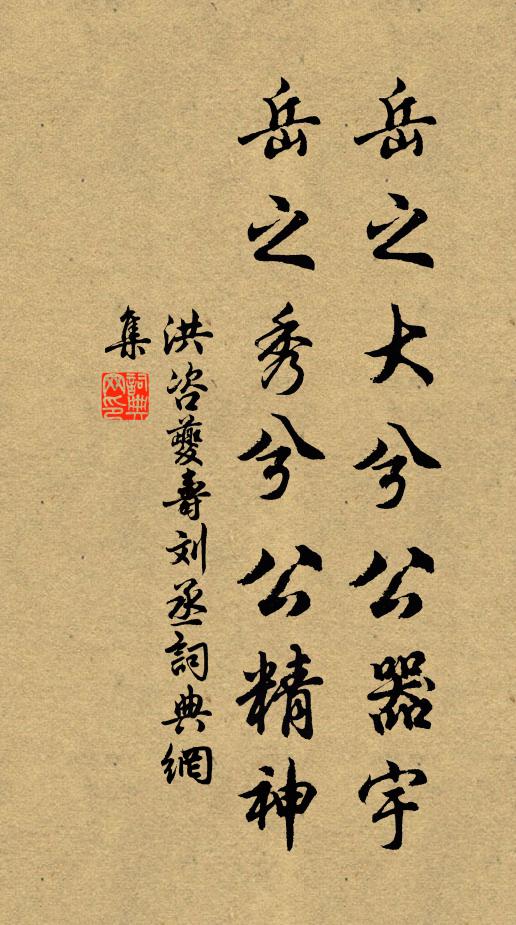 岳之大兮公器宇
岳之秀兮公精神
洪咨夔壽刘丞詞典網
集
詞典網印